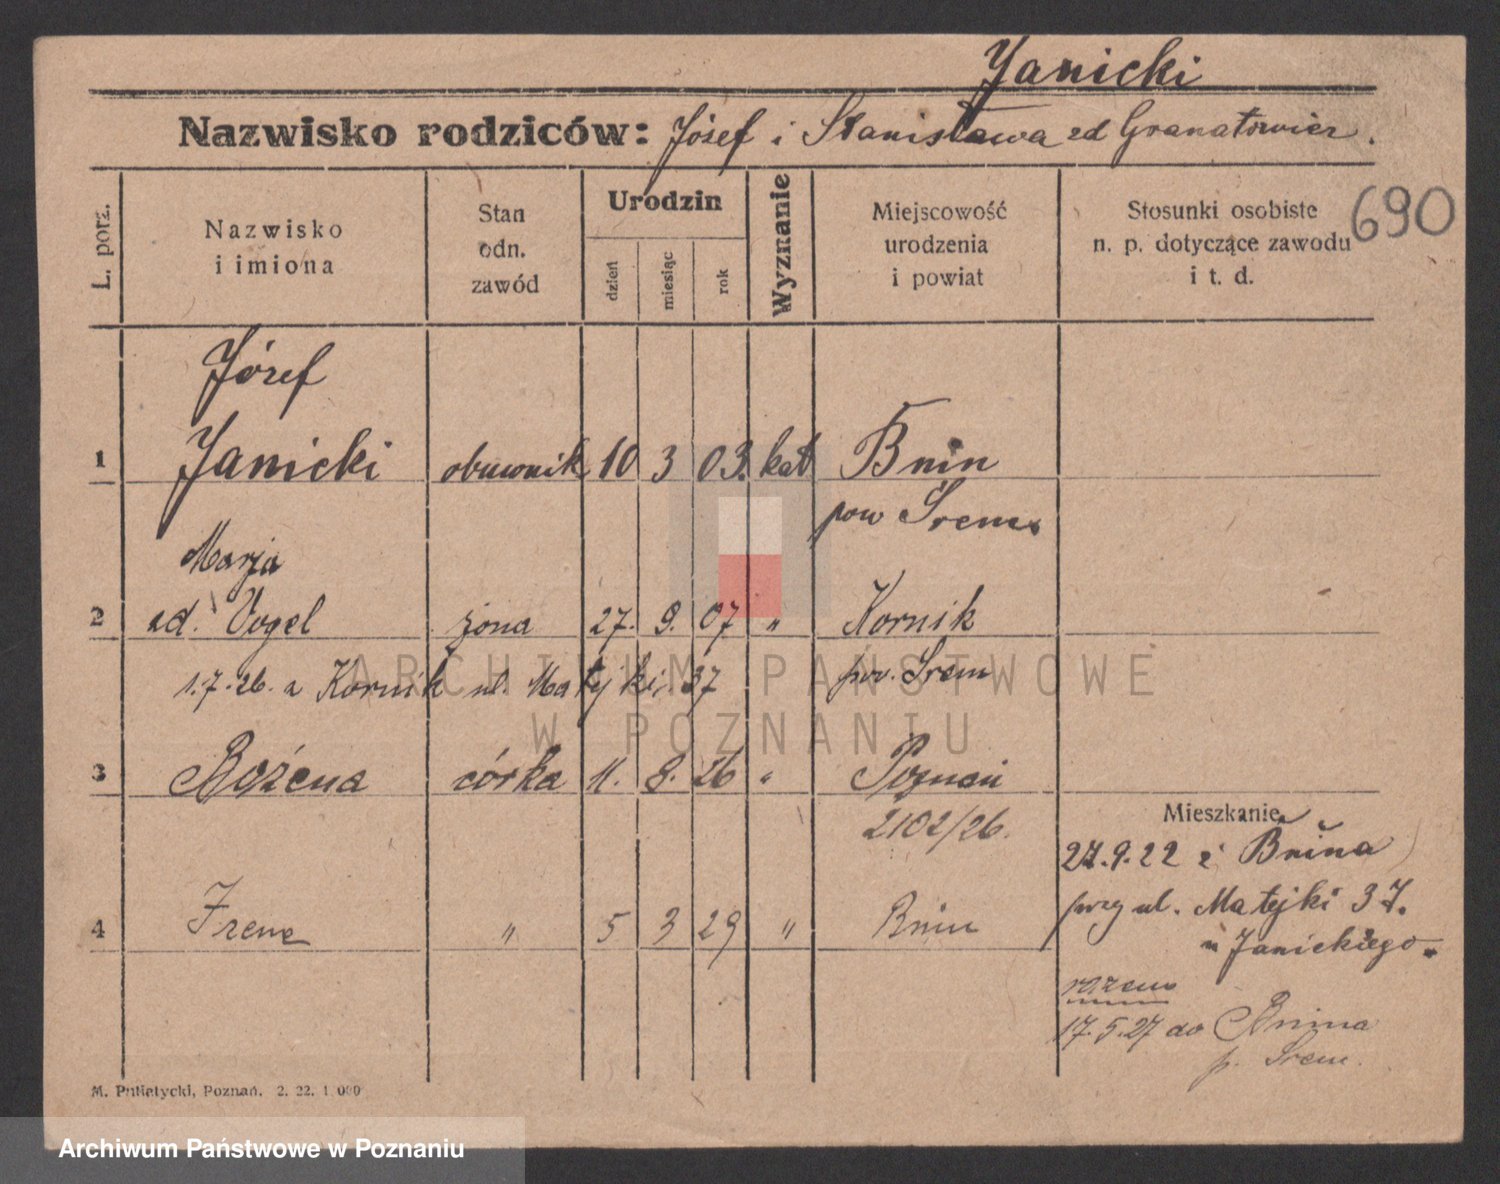 Janicki
Nazwisko rodziców: Józef i Stanisława zd Granatowicz.
690
L. porz.
Nazwisko i imiona
Stan odn. zawód
Urodzin
dzień
miesiąc
rok
Wyznanie
Miejscowość urodzenia i powiat
Stosunki osobiste n. p. dotyczące zawodu i t. d.
Józef
1 Janicki obuwnik 10 3 03. kat Bnin
pow Śrem.
Marja
2 zd. Vogel żona 27. 9. 07 " Kornik
1.7.26. z Kornik ul. Matejki 37 pow. Śrem
3 Bożena córka 11. 8. 26 " Poznań
2102/26.
4 Irena " 5 3 29 " Bnin
Mieszkanie
27.9.22 z Bnina
przy ul. Matejki 37.
u Janickiego
razem
17.5.27 do Bnina
p. Śrem.
M. Putiatycki, Poznań. 2. 22. 1 000
ARCHIWUM PAŃSTWOWE
W POZNANIU
Archiwum Państwowe w Poznaniu